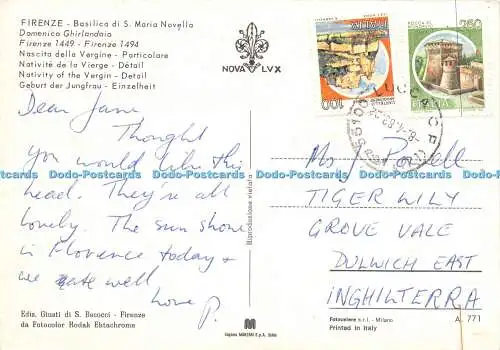 FIRENZE - Basilica di S. Maria Novella
Domenico Ghirlandaio
Firenze 1449 - Firenze 1494
Nascita della Vergine - Particolare
Nativité de la Vierge - Détail
Nativity of the Vergin - Detail
Geburt der Jungfrau - Einzelheit
NOVA LVX
Dear Jane
Thought
you would like this
head. They're all
lovely. The sun shone
in Florence today &
we ate well
love P.
Ediz. Giusti di S. Becocci - Firenze
da Fotocolor Kodak Ektachrome
Riproduzione vietata
ITALIA
100
250
ITALIA
LUCCA C.P.
55100
Mrs J Powell
TIGER LILY
GROVE VALE
DULWICH EAST
INGHILTERRA
Fotocelere s.r.l. - Milano
A. 771
Printed in Italy
Dodo-Postcards Dodo-Postcards Dodo-Postcards Dodo-Postcards
Dodo-Postcards Dodo-Postcards Dodo-Postcards Dodo-Postcards